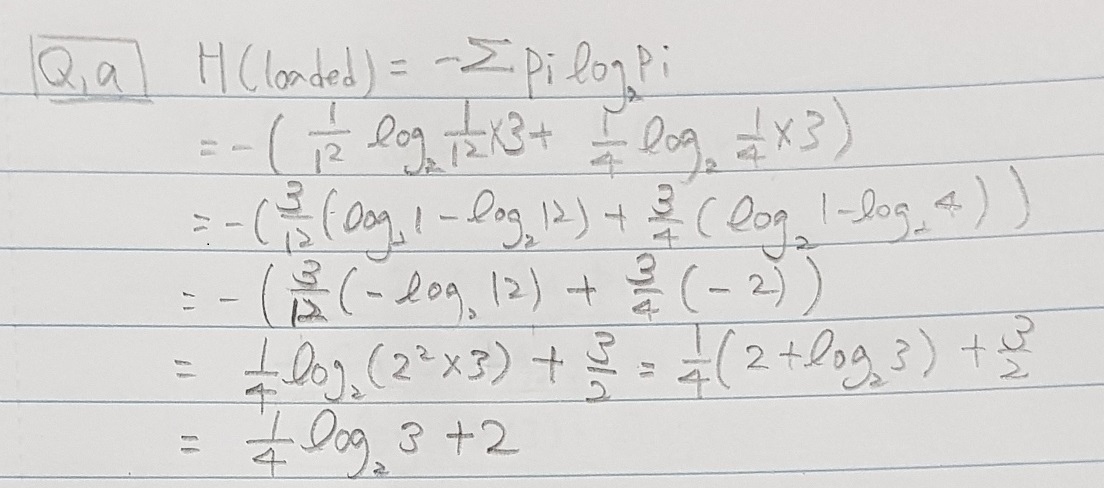 Q1a H(loaded) = -Σ pi log₂ pi
= -( 1/12 log₂ 1/12 ×3 + 1/4 log₂ 1/4 ×3)
= -( 3/12 (log₂ 1 - log₂ 12) + 3/4 ( log₂ 1 - log₂ 4 ) )
= -( 3/12 (- log₂ 12) + 3/4 (- 2) )
= 1/4 log₂ (2² × 3) + 3/2 = 1/4 ( 2 + log₂ 3) + 3/2
= 1/4 log₂ 3 + 2